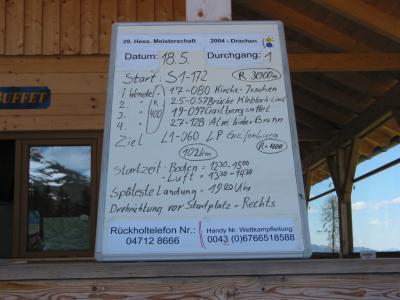 29. Hess. Meisterschaft 2004 - Drachen
Datum: 18.5. Durchgang: 1
Start: S1-172 R 3000m
1. Wende 17-080 Kirche-Irschen
2. 25-057 Brücke Kleblach-Lind
3. R 400 19-097 Gailbergsattel
4. 27-128 Alm hinter Brunn
Ziel L1-060 LP Greifenburg
102km R=400
Startzeit - Boden = 1230-1500
- Luft = 1330-1430
Späteste Landung - 1900 Uhr
Drehrichtung vor Startplatz - Rechts
Rückholtelefon Nr.: Handy Nr. Wettkampfleitung:
04712 8666 0043 (0)6766518588
BUFFET